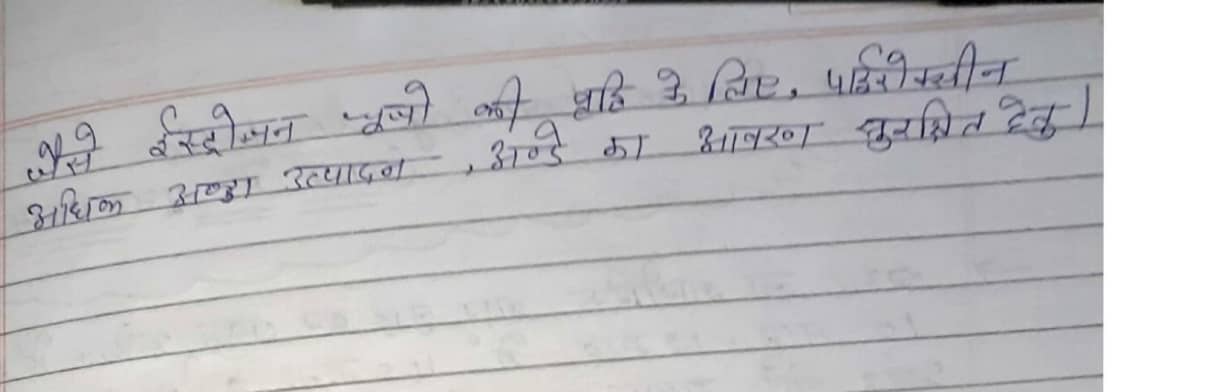 जैसे ईस्ट्रोजन चूजो की वृद्धि के लिए, पाईरोक्सीन
अधिक अण्डा उत्पादन, अण्डे का आवरण सुरक्षित हेतु।